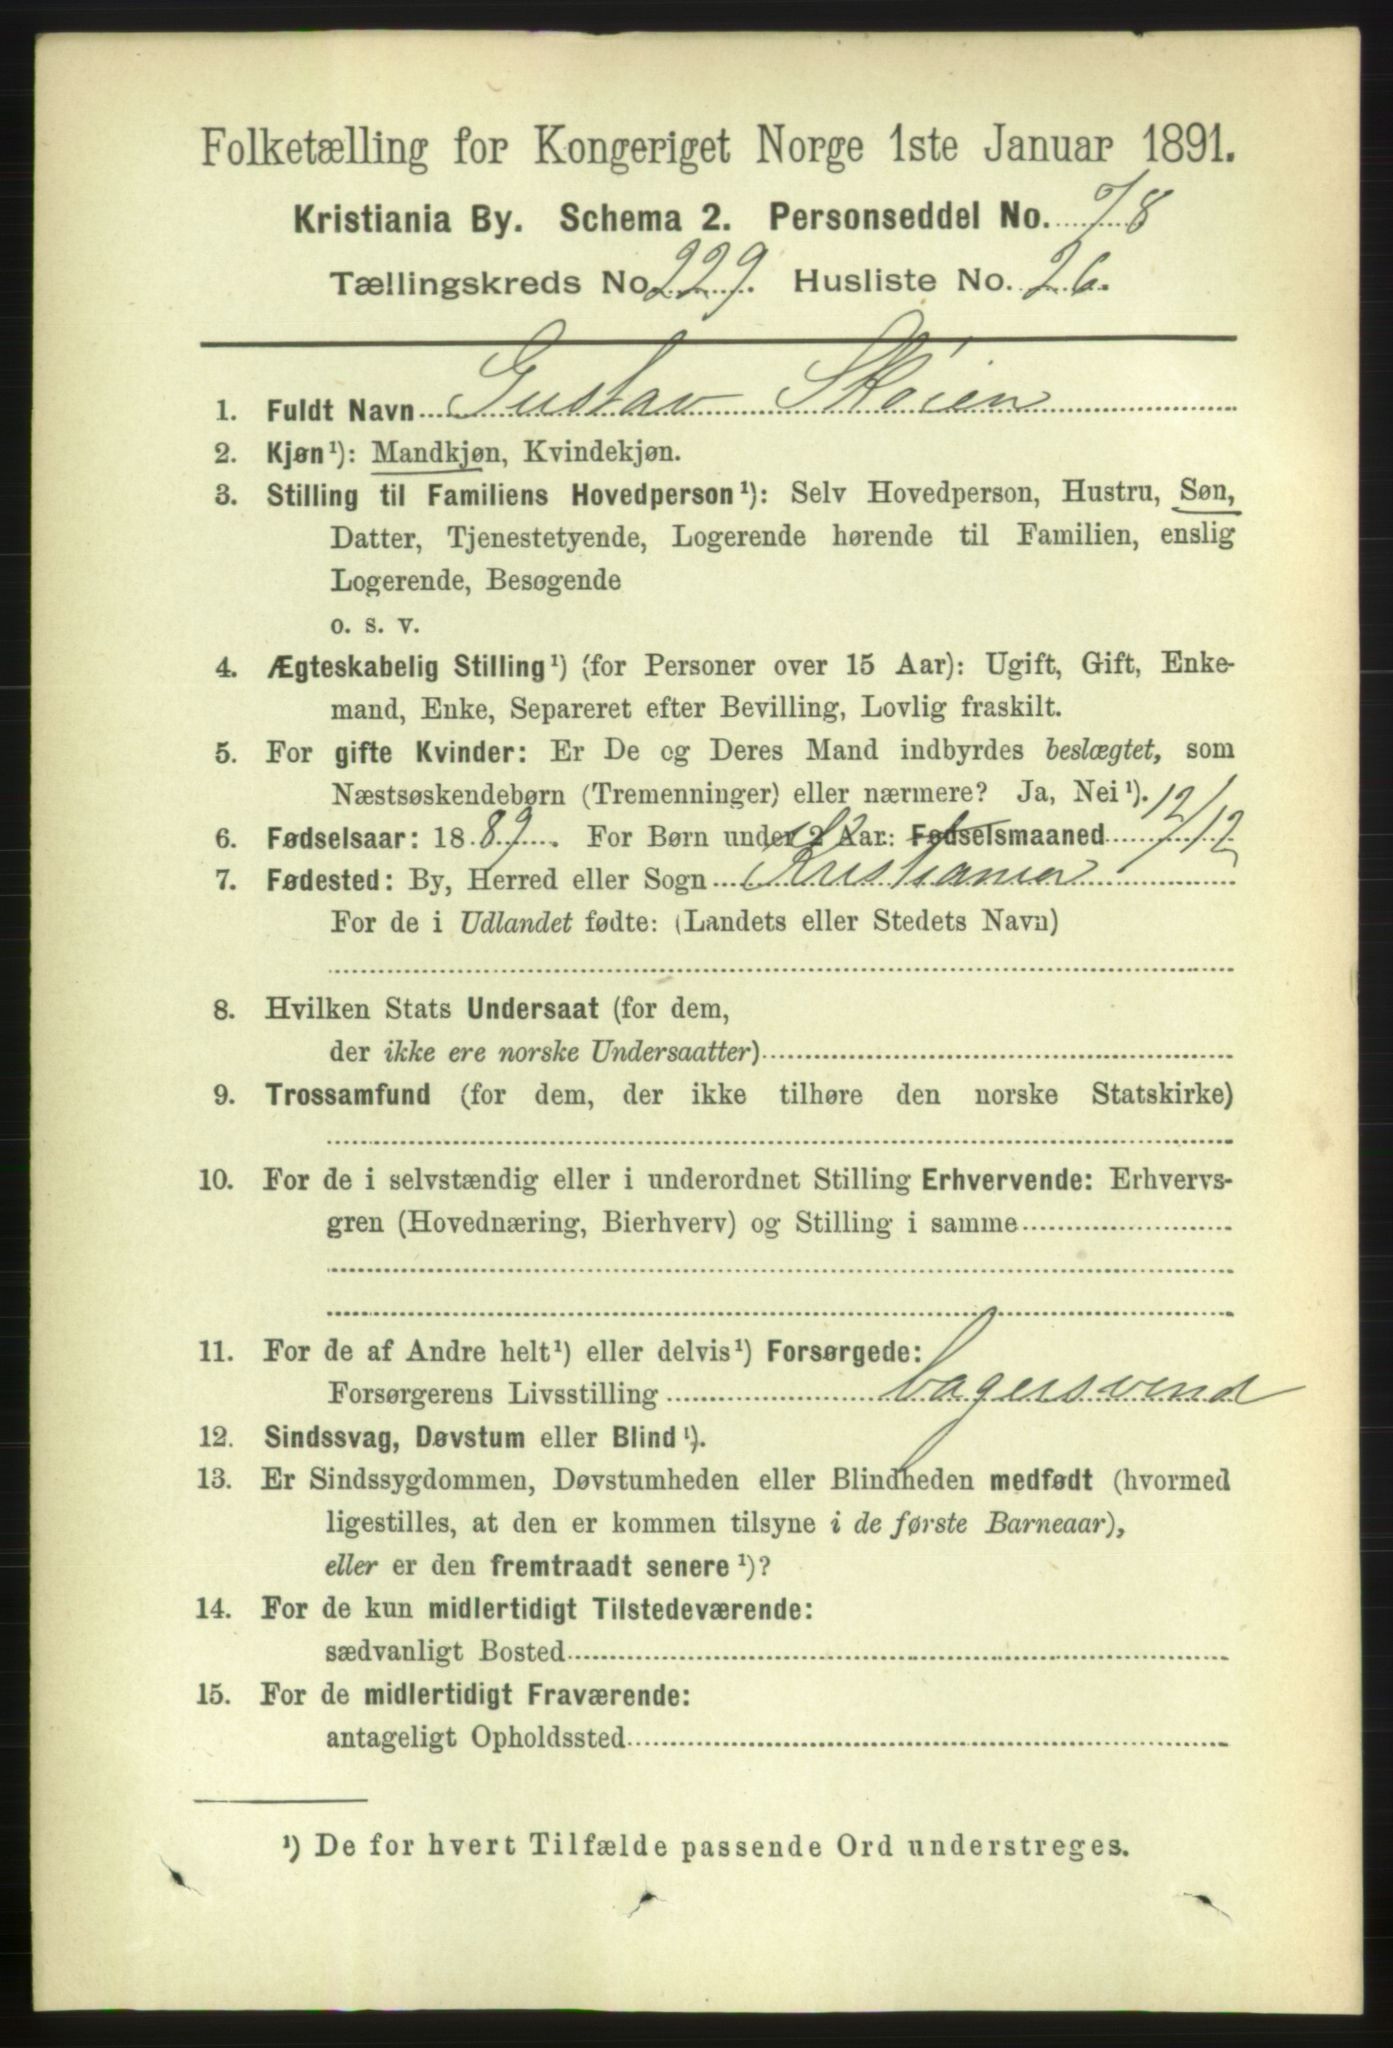 Folketælling for Kongeriget Norge 1ste Januar 1891.
Kristiania By. Schema 2. Personseddel No. 78
Tællingskreds No. 229. Husliste No. 26.
1. Fuldt Navn Gustav Skøien
2. Kjøn¹): Mandkjøn, Kvindekjøn.
3. Stilling til Familiens Hovedperson¹): Selv Hovedperson, Hustru, Søn,
Datter, Tjenestetyende, Logerende hørende til Familien, enslig
Logerende, Besøgende
o. s. v.
4. Ægteskabelig Stilling¹) (for Personer over 15 Aar): Ugift, Gift, Enke-
mand, Enke, Separeret efter Bevilling, Lovlig fraskilt.
5. For gifte Kvinder: Er De og Deres Mand indbyrdes beslægtet, som
Næstsøskendebørn (Tremenninger) eller nærmere? Ja, Nei¹).
6. Fødselsaar: 1889. For Børn under 2 Aar: Fødselsmaaned 12/12
7. Fødested: By, Herred eller Sogn Kristiania
For de i Udlandet fødte: (Landets eller Stedets Navn)
8. Hvilken Stats Undersaat (for dem,
der ikke ere norske Undersaatter)
9. Trossamfund (for dem, der ikke tilhøre den norske Statskirke)
10. For de i selvstændig eller i underordnet Stilling Erhvervende: Erhvervs-
gren (Hovednæring, Bierhverv) og Stilling i samme
11. For de af Andre helt¹) eller delvis¹) Forsørgede:
Forsørgerens Livsstilling bagersvend
12. Sindssvag, Døvstum eller Blind¹).
13. Er Sindssygdommen, Døvstumheden eller Blindheden medfødt (hvormed
ligestilles, at den er kommen tilsyne i de første Barneaar),
eller er den fremtraadt senere¹)?
14. For de kun midlertidigt Tilstedeværende:
sædvanligt Bosted
15. For de midlertidigt Fraværende:
antageligt Opholdssted
¹) De for hvert Tilfælde passende Ord understreges.